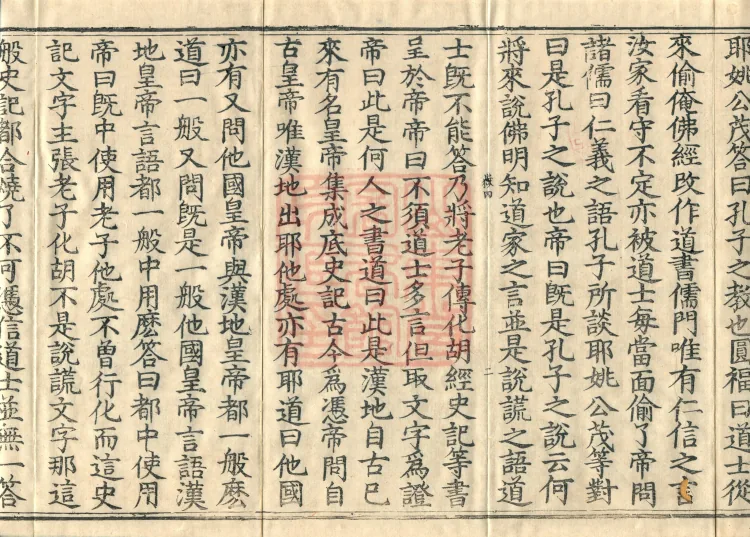 耶姚公茂答曰孔子之教也圓福曰道士從
來偷俺佛經改作道書儒門唯有仁信之言
汝家看守不定亦被道士每當面偷了帝問
諸儒曰仁義之語孔子所談耶姚公茂等對
曰是孔子之說也帝曰既是孔子之說云何
將來說佛明知道家之言並是說謊之語道
二
士既不能答乃將老子傳化胡經史記等書
呈於帝帝曰不須道士多言但取文字為證
帝曰此是何人之書道曰此是漢地自古已
來有名皇帝集成底史記古今為憑帝問自
古皇帝唯漢地出耶他處亦有耶道曰他國
亦有又問他國皇帝與漢地皇帝都一般麼
道曰一般又問既是一般他國皇帝言語漢
地皇帝言語都一般中用麼答曰都中使用
帝曰既中使用老子他處不曾行化而這史
記文字主張老子化胡不是說謊文字那這
般史記都合燒了不可憑信道士並無一答